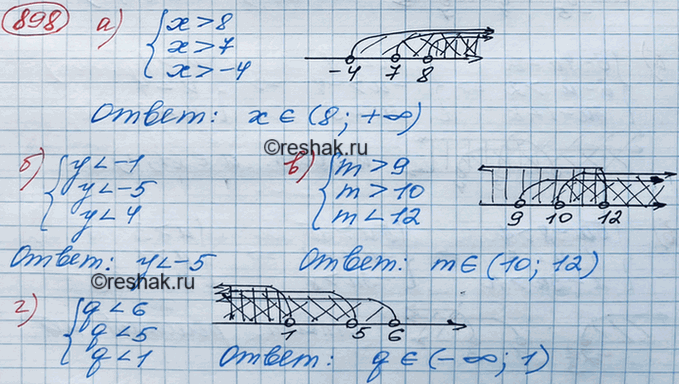 898 а) { x > 8
x > 7
x > -4
-4 7 8
Ответ: x ∈ (8; +∞)
©reshak.ru
б) { y < -1
y < -5
y < 4
Ответ: y < -5
в) { m > 9
m > 10
m < 12
9 10 12
Ответ: m ∈ (10; 12)
©reshak.ru
г) { q < 6
q < 5
q < 1
1 5 6
Ответ: q ∈ (-∞; 1)